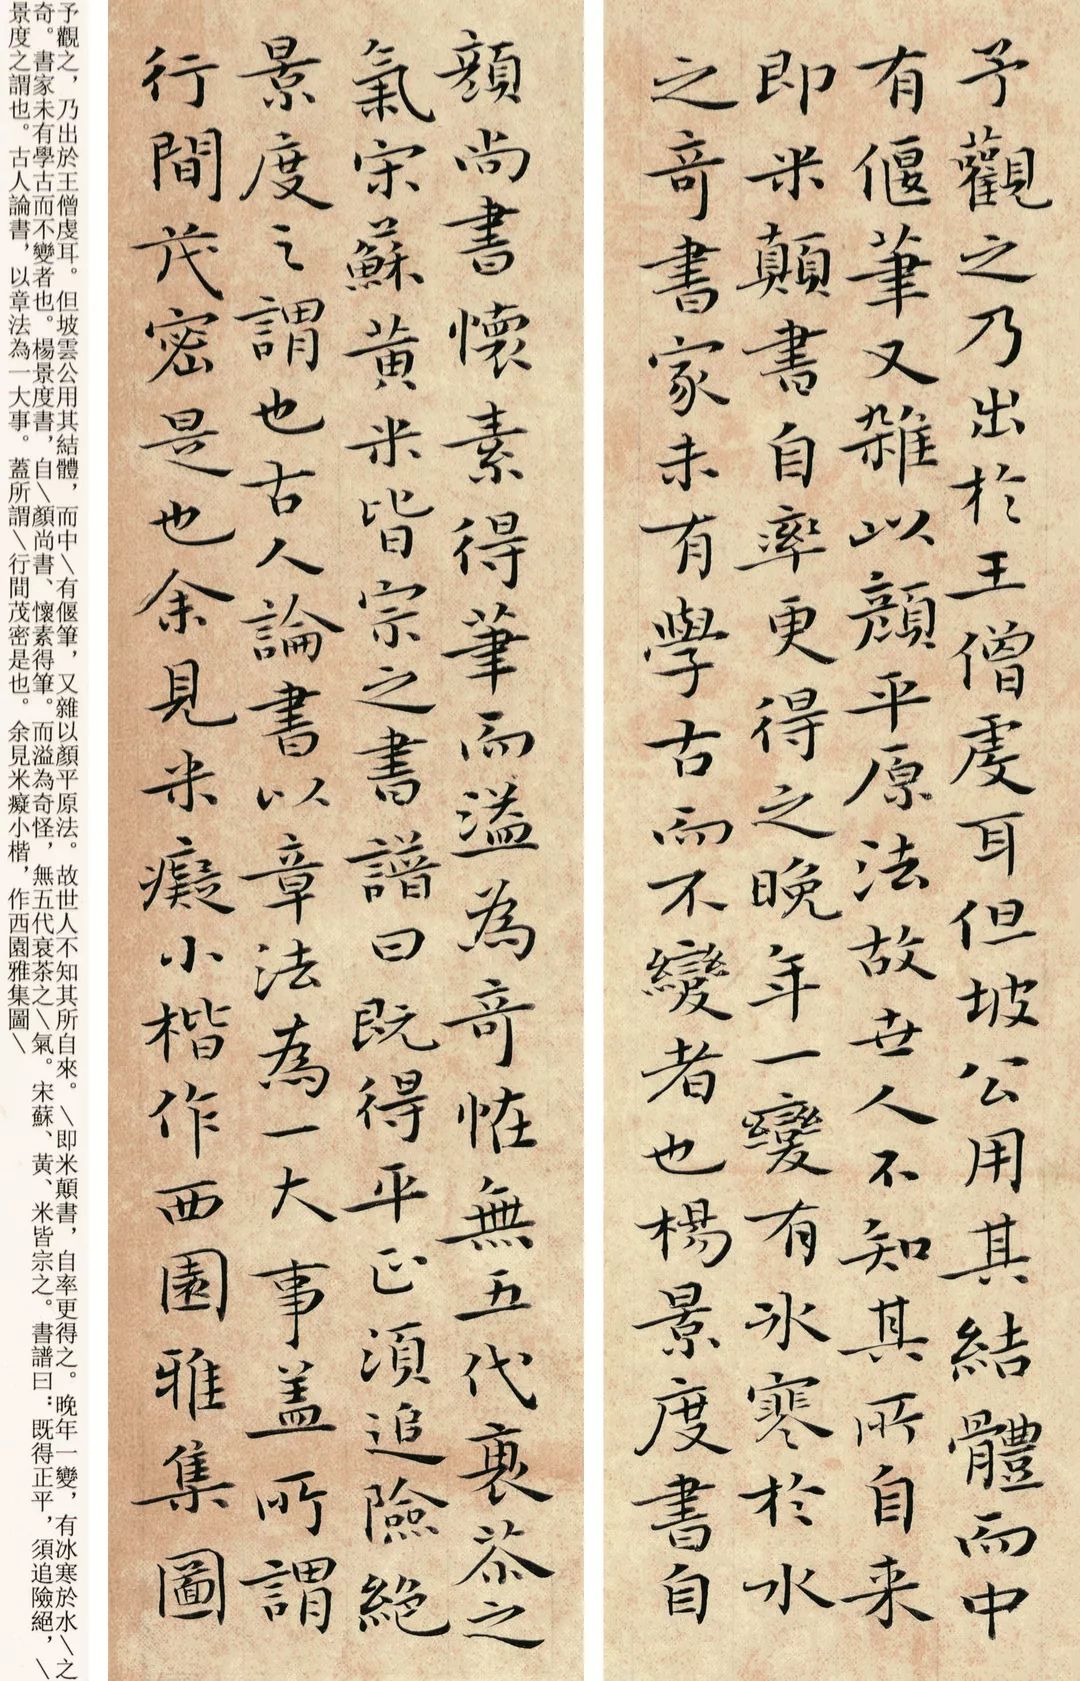 予觀之乃出於王僧虔耳但坡公用其結體而中
有偃筆又雜以顏平原法故世人不知其所自来
即米顛書自率更得之晚年一變有冰寒於水
之奇書家未有學古而不變者也楊景度書自
顏尚書懷素得筆而溢為奇恠無五代衰苶之
氣宋蘇黃米皆宗之書譜曰既得平正須追險絕
景度之謂也古人論書以章法為一大事盖所謂
行間茂密是也余見米癡小楷作西園雅集圖
予觀之，乃出於王僧虔耳。但坡雲公用其結體，而中\有偃筆，又雜以顏平原法。故世人不知其所自來。\即米顛書，自率更得之。晚年一變，有冰寒於水\之
奇。書家未有學古而不變者也。楊景度書，自\顏尚書、懷素得筆。而溢為奇怪，無五代衰茶之\氣。宋蘇、黃、米皆宗之。書譜曰：既得正平，須追險絕，\
景度之謂也。古人論書，以章法為一大事。蓋所謂\行間茂密是也。余見米癡小楷，作西園雅集圖\